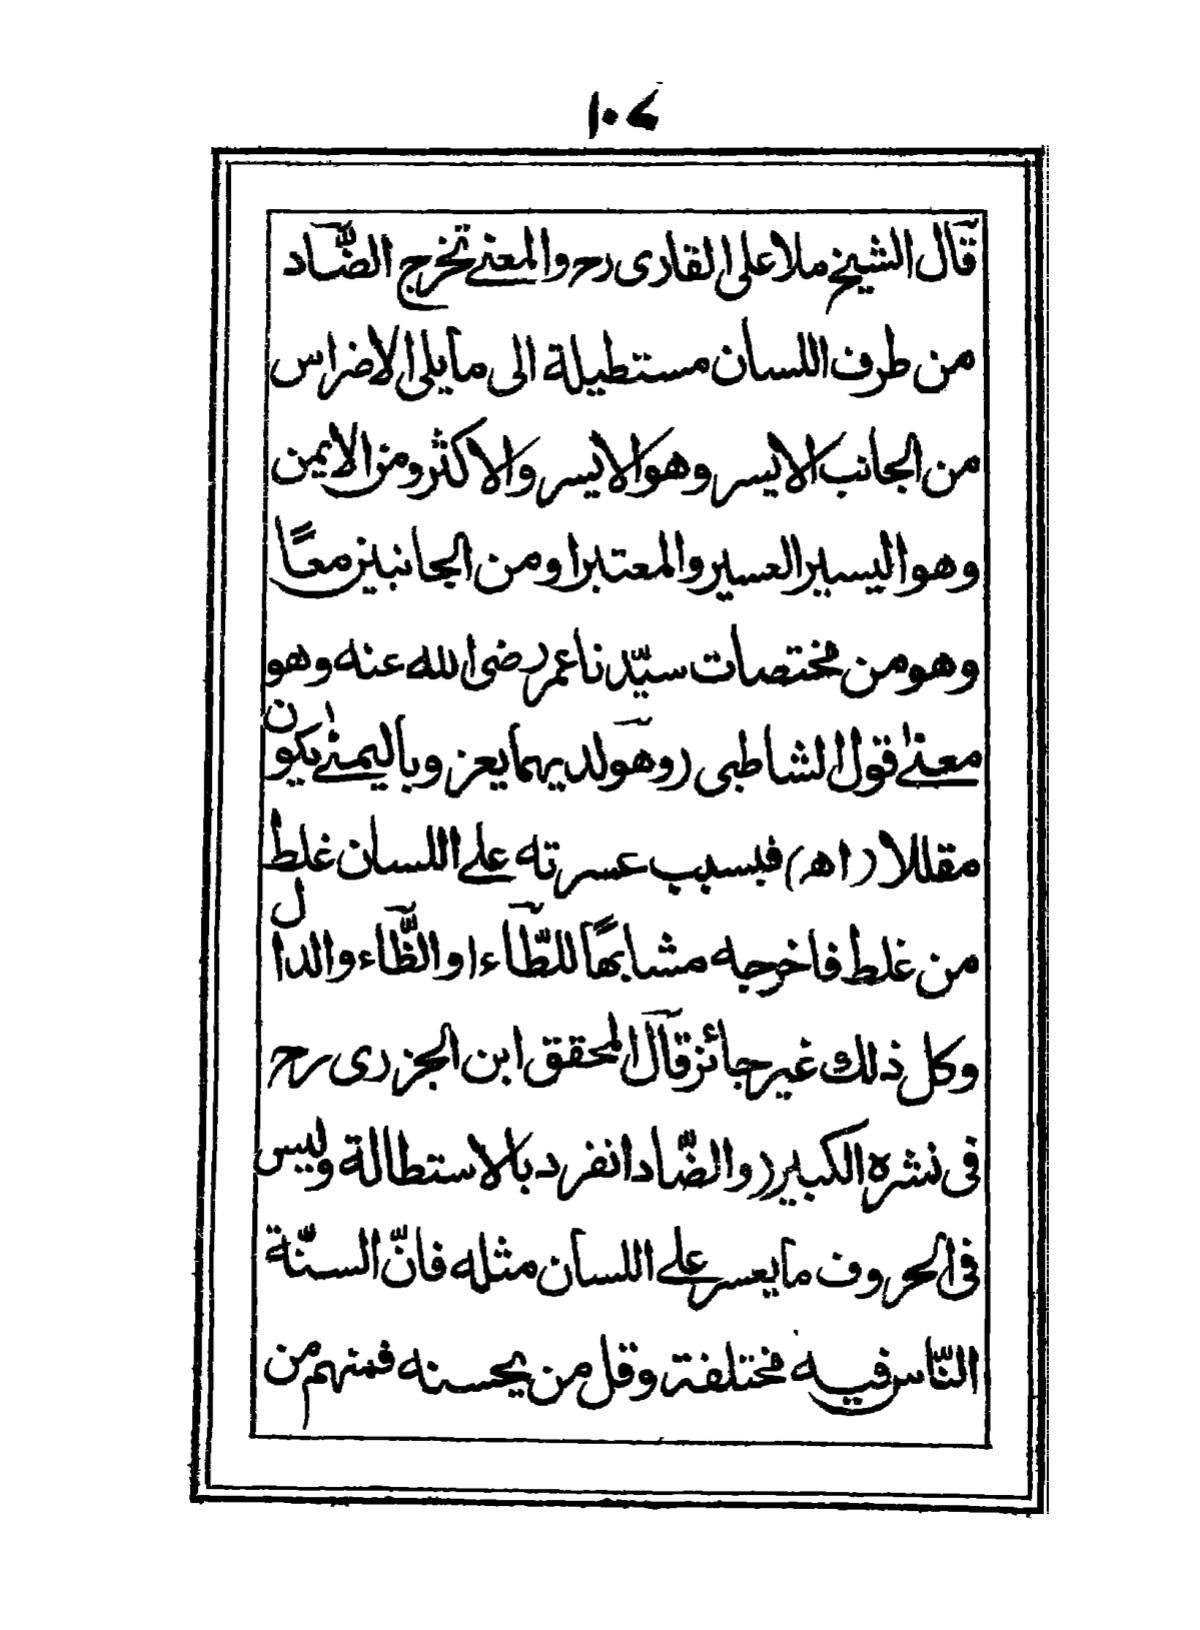 ١٠٧
قال الشيخ ملا على القارى رح والمعنى تخرج الضّاد
من طرف اللسان مستطيلة الى ما يلى الاضراس
من الجانب الايسر وهو الايسر والاكثر ومن الايمن
وهو اليسير العسير والمعتبر او من الجانبين معًا
وهو من مختصات سيّدنا عمر رضى الله عنه وهو
معنى قول الشاطبى (وهو لديهما يعز وباليمنى يكون
مقللا (اھ) فبسبب عسرته على اللسان غلط
من غلط فاخرجه مشابهًا للطّاء او الظّاء والدال
وكل ذلك غير جائز قال المحقق ابن الجزرى رح
فى نشره الكبير (والضّاد انفرد بالاستطالة وليس
فى الحروف ما يعسر على اللسان مثله فانّ السنّة
النّاس فيه مختلفة وقل من يحسنه فمنهم من